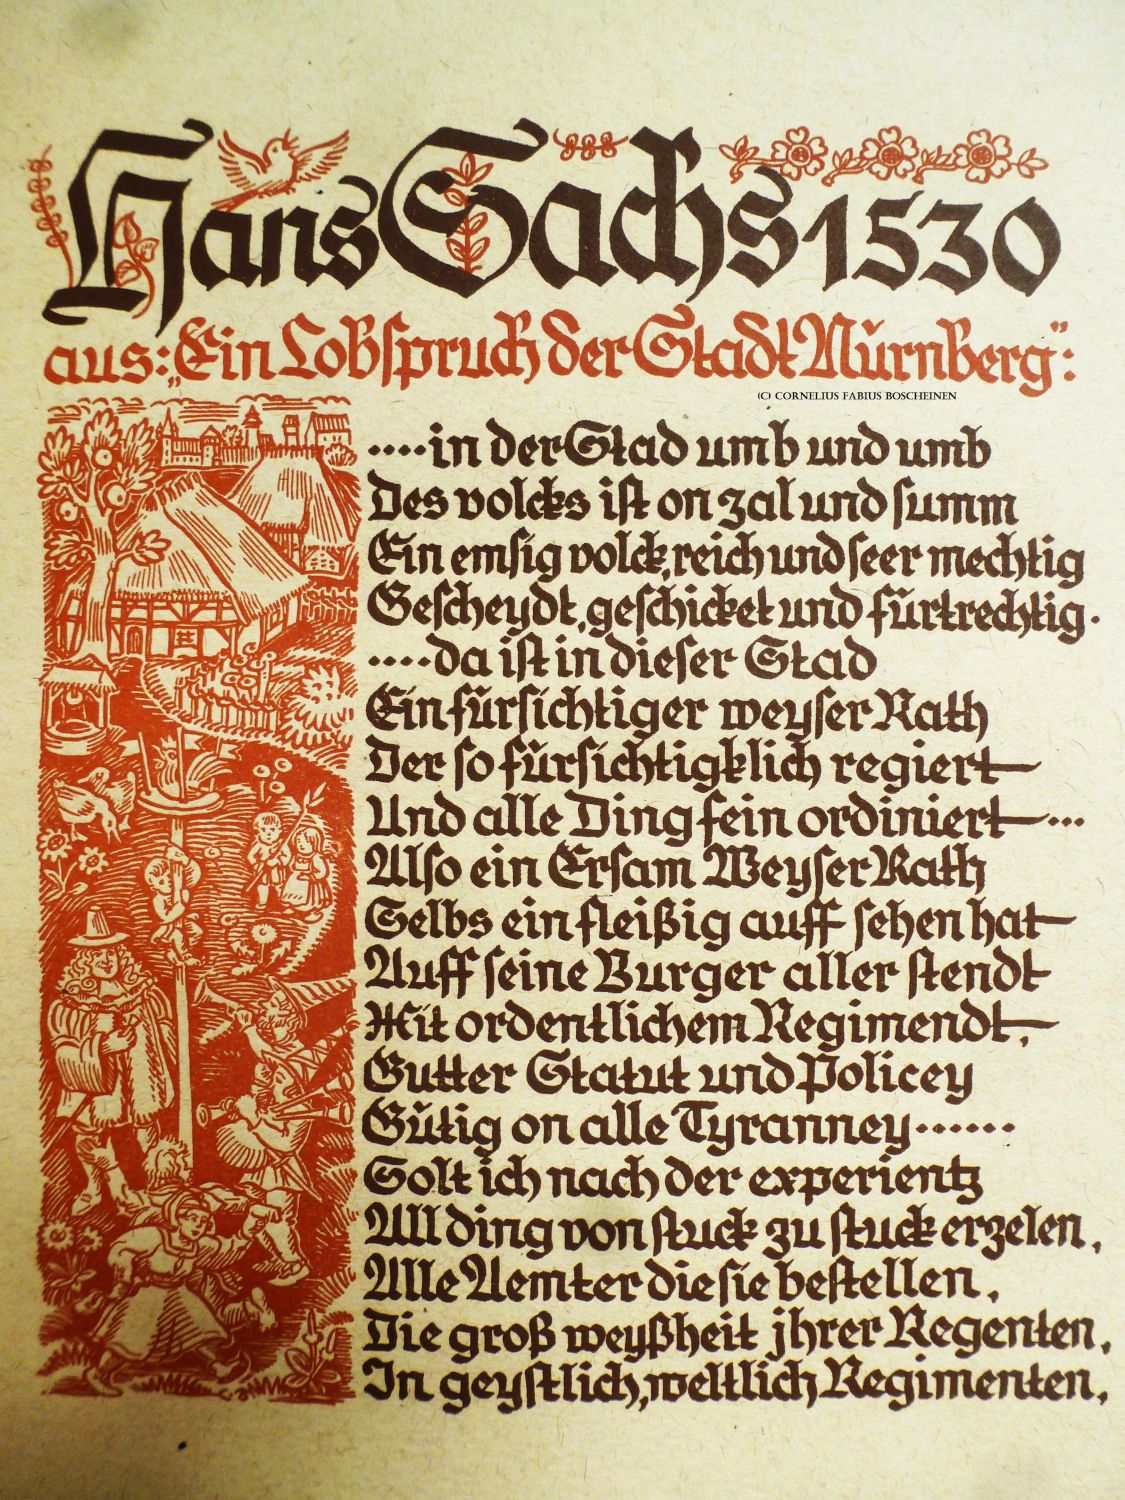 Hans Sachs 1530
aus: „Ein Lobspruch der Stadt Nürnberg":
(C) CORNELIUS FABIUS BOSCHEINEN
....in der Stad umb und umb
Des volcks ist on zal und summ
Ein emsig volck, reich und seer mechtig
Gescheydt, geschicket und fürtrechtig.
....da ist in dieser Stad
Ein fürsichtiger weyser Rath
Der so fürsichtigklich regiert
Und alle Ding fein ordiniert...
Also ein Ersam Weyser Rath
Selbs ein fleißig auff sehen hat
Auff seine Burger aller stendt
Mit ordentlichem Regimendt,
Gutter Statut und Policey
Gütig on alle Tyranney......
Solt ich nach der experientz
All ding von stuck zu stuck erzelen,
Alle Aemter die sie bestellen,
Die groß weyßheit jhrer Regenten,
In geystlich, weltlich Regimenten,